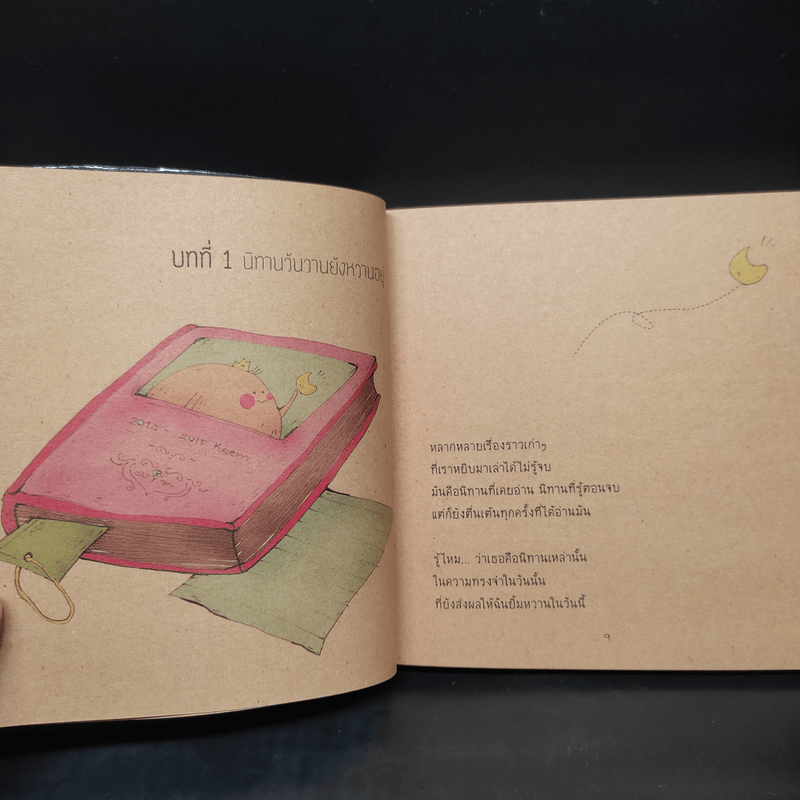 บทที่ 1 นิทานวันวานยังหวานอยู่
2014 - 2015
หลากหลายเรื่องราวเก่าๆ
ที่เราหยิบมาเล่าได้ไม่รู้จบ
มันคือนิทานที่เคยอ่าน นิทานที่รู้ตอนจบ
แต่ก็ยังตื่นเต้นทุกครั้งที่ได้อ่านมัน
รู้ไหม... ว่าเธอคือนิทานเหล่านั้น
ในความทรงจำในวันนั้น
ที่ยังส่งผลให้ฉันยิ้มหวานในวันนี้
๑